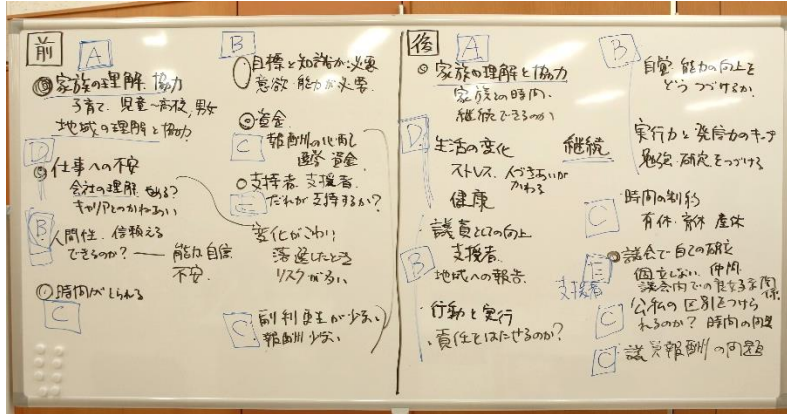 前
A
◎家族の理解、協力
子育て、児童〜高校、男女
地域の理解と協力
D
◎仕事への不安
会社の理解、やめる?
キャリアとのかねあい
B
人間性、信頼える
できるのか? — 能力 自信
不安
◎時間がとられる
C
B
○目標と知識が必要
意欲 能力が必要
◎資金
C
報酬の
選挙 資金
○支持者、支援者
E
だれが支持するか?
変化がこわい
落選したとき
リスクが高い
C
福利厚生が少ない
報酬 少ない
後
A
◎家族の理解と協力
家族との時間
継続できるのか
D
生活の変化
継続
ストレス、人づきあいが
かわる
健康
議員としての向上
支援者
B
地域への報告
行動と実行
責任をはたせるのか?
B
自覚 能力の向上を
どうつづけるか
実行力と発言力のキープ
勉強・研究をつづける
C
時間の制約
有休 育休 産休
◎議会で自己の確立
E
支援者
孤立しない 仲間
議会内での良好な関係
C
公私の区別をつけら
れるのか? 時間の問題
C
議員報酬の問題